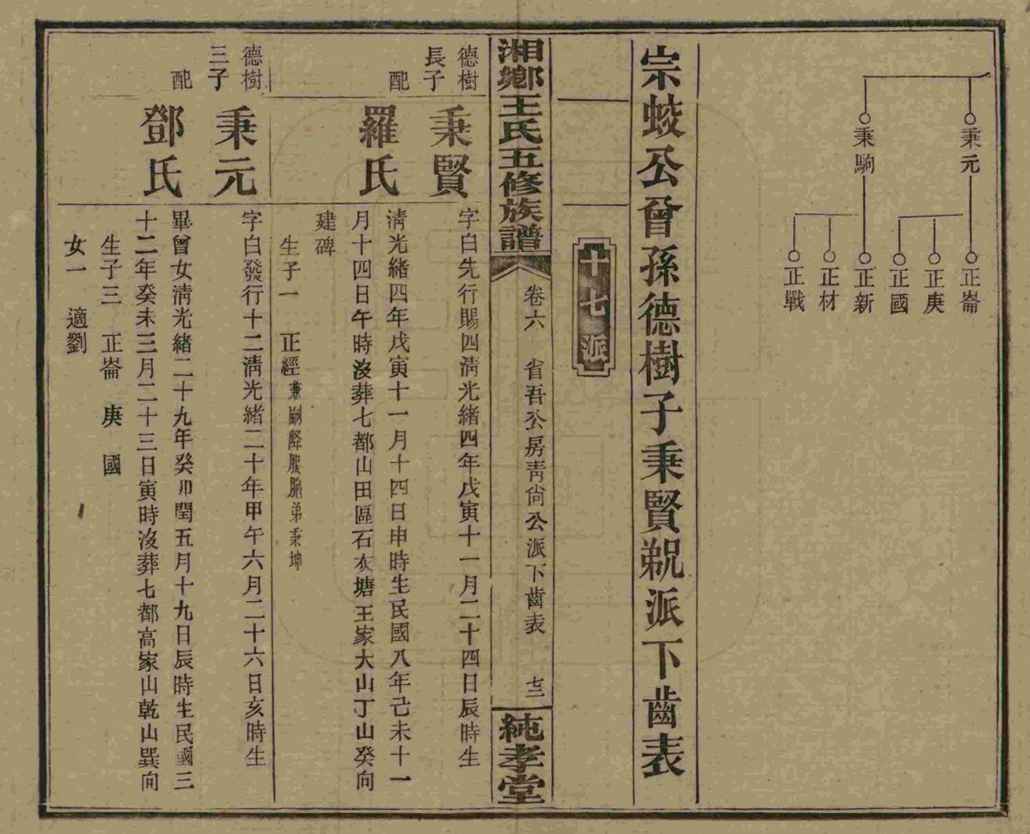 秉元
正崙
正庚
正國
秉駒
正新
正材
正戰
宗蛟公曾孫德樹子秉賢
派下齒表
十七派
湘鄉王氏五修族譜
卷六
省吾公房靑尙公派下齒表
純孝堂
德樹長子
秉賢
字白先行賜四淸光緒四年戊寅十一月二十四日辰時生
配
羅氏
淸光緒四年戊寅十一月十四日申時生民國八年己未十一
月十四日午時沒葬七都山田區石衣塘王家大山丁山癸向
建碑
生子一　正經兼嗣
胞弟秉坤
德樹三子
秉元
字白發行十二淸光緒二十年甲午六月二十六日亥時生
配
鄧氏
畢曾女淸光緒二十九年癸卯閏五月十九日辰時生民國三
十二年癸未三月二十三日寅時沒葬七都高家山乾山巽向
生子三　正崙　庚　國
女一　適劉